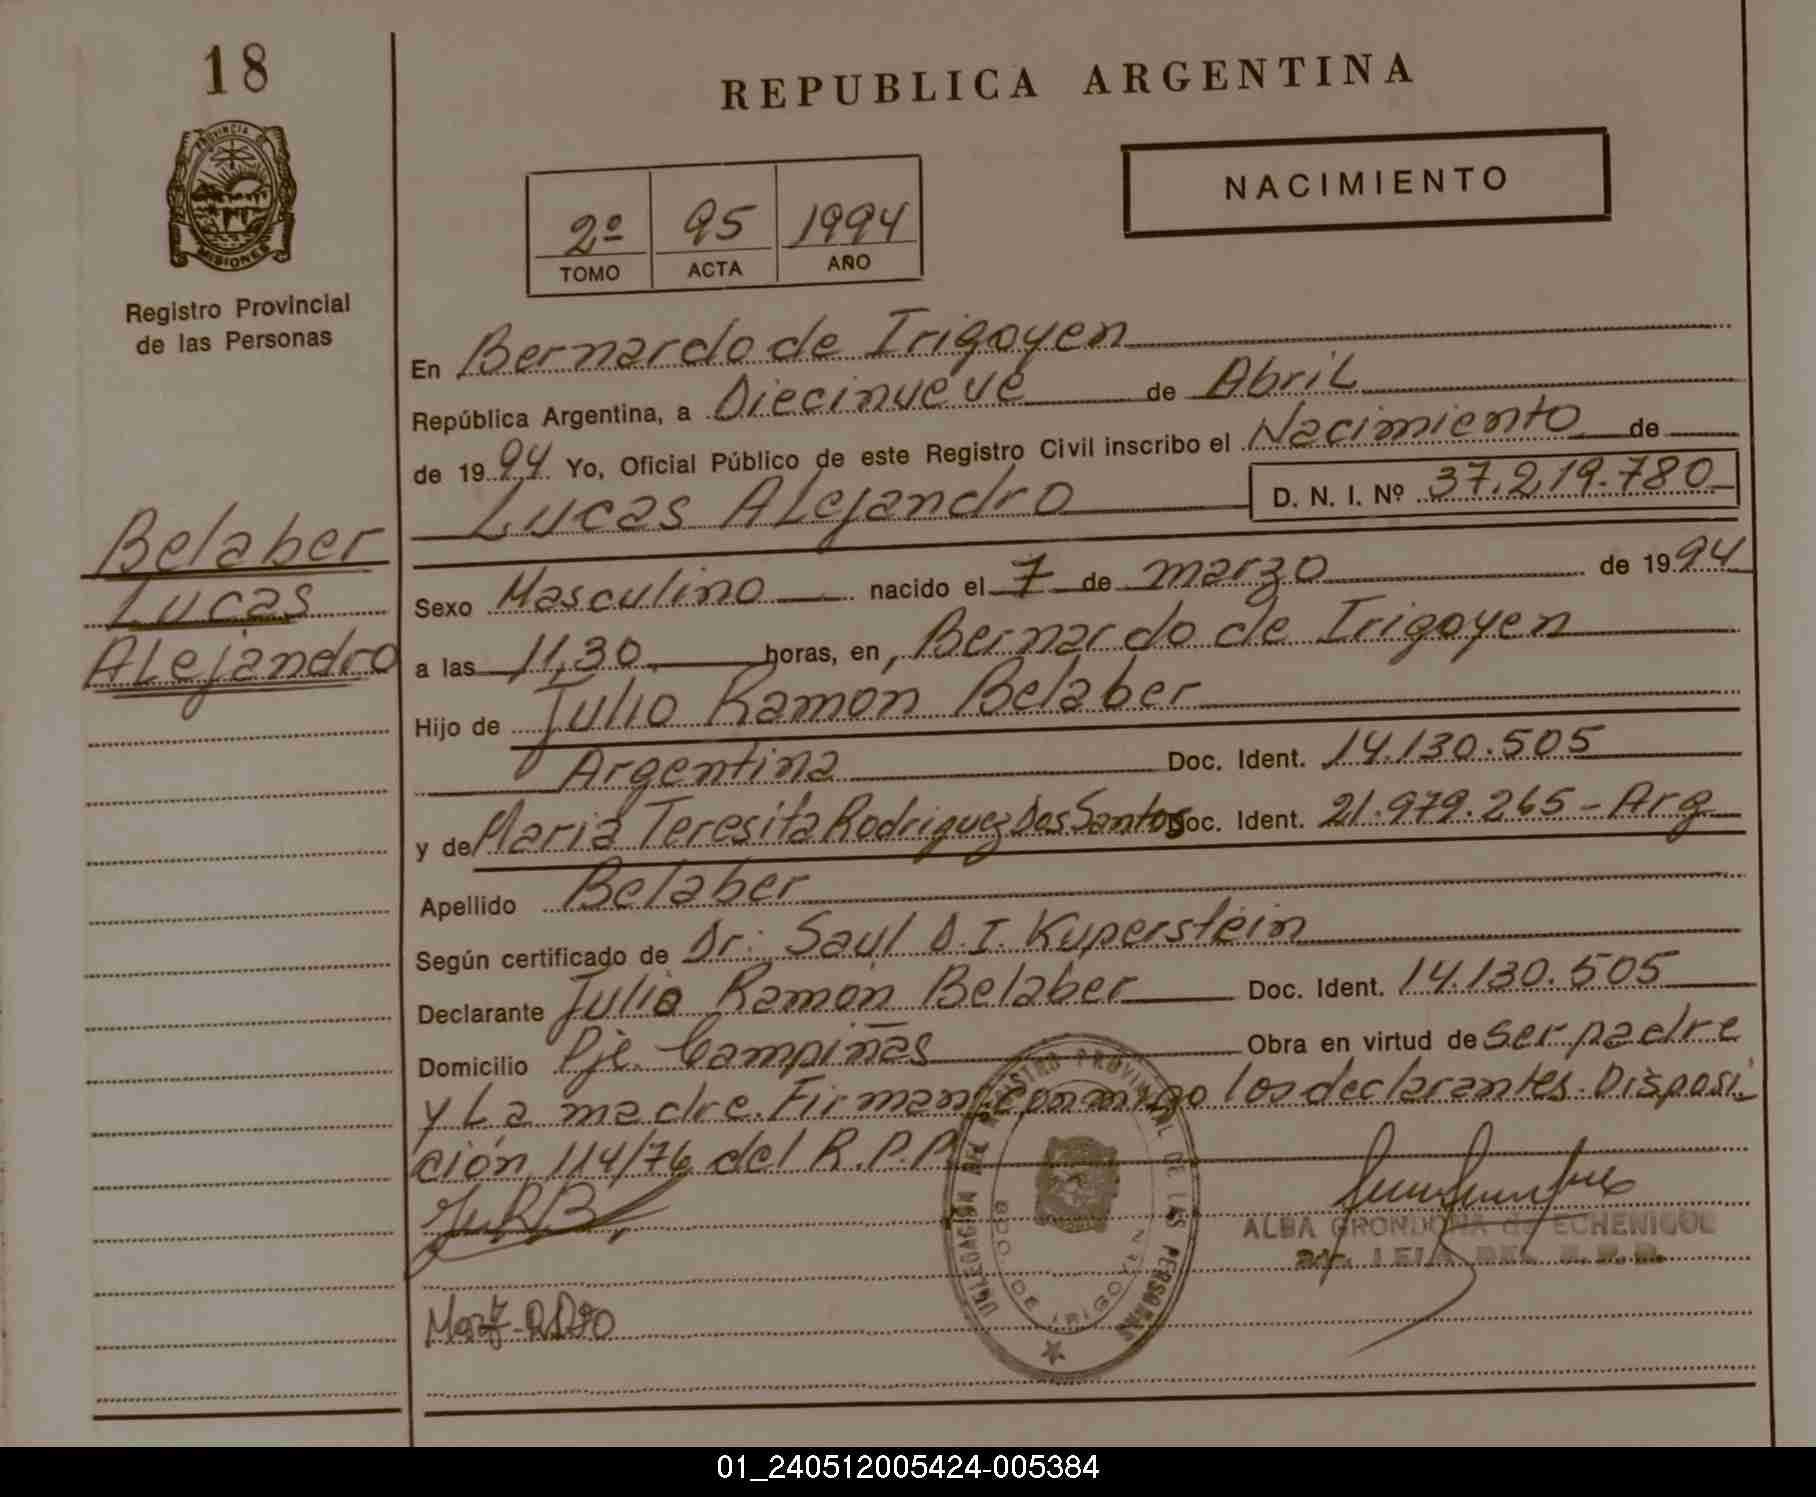 18
PROVINCIA D
MISIONES
Registro Provincial
de las Personas
REPUBLICA ARGENTINA
NACIMIENTO
2º 95 1994
TOMO ACTA AÑO
Belaber
Lucas
Alejandro
En Bernardo de Irigoyen
República Argentina, a Diecinueve de Abril
de 1994 Yo, Oficial Público de este Registro Civil inscribo el Nacimiento de
Lucas Alejandro D. N. I. Nº 37.219.780
Sexo Masculino nacido el 7 de marzo de 1994
a las 11,30 horas, en Bernardo de Irigoyen
Hijo de Julio Ramón Belaber
Argentina Doc. Ident. 14.130.505
y de Maria Teresita Rodriguez Dos Santos Doc. Ident. 21.979.265 - Arg
Apellido Belaber
Según certificado de Dr: Saul D. I. Kuperstein
Declarante Julio Ramón Belaber Doc. Ident. 14.130.505
Domicilio Pje. Campiñas Obra en virtud de ser padre
y La madre. Firman conmigo los declarantes. Disposi
ción 114/76 del R.P.P.
DELEGACION DEL REGISTRO PROVINCIAL DE LAS PERSONAS
BDO. DE IRIGOYEN
ALBA GRONDONA de ECHENIQUE
01_240512005424-005384